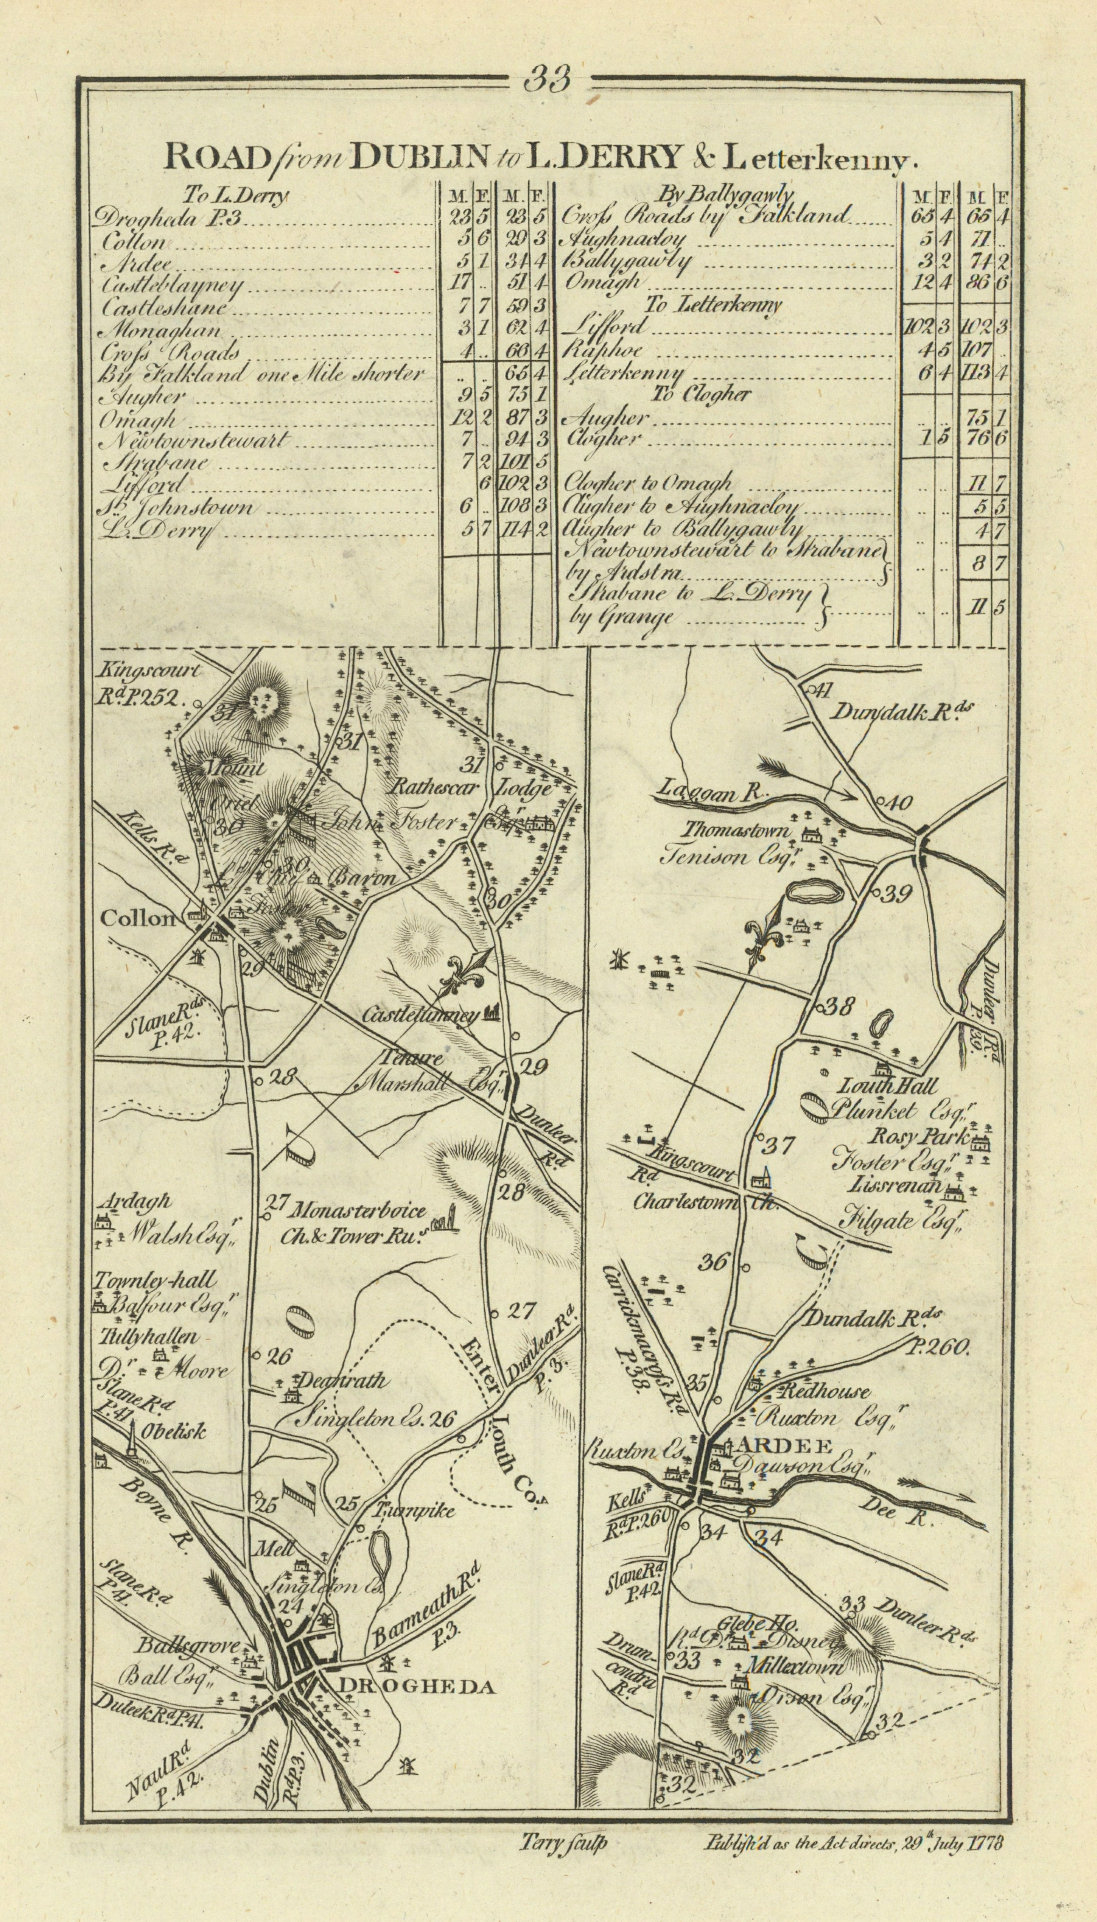 33
ROAD from DUBLIN to L.DERRY & Letterkenny.
To L. Derry M. F. M. F.
Drogheda P.3 23 5 23 5
Collon 5 6 29 3
Ardee 5 1 34 4
Castleblayney 17 .. 51 4
Castleshane 7 7 59 3
Monaghan 3 1 62 4
Croſs Roads 4 .. 66 4
By Falkland one Mile shorter .. .. 65 4
Augher 9 5 75 1
Omagh 12 2 87 3
Newtownstewart 7 .. 94 3
Strabane 7 2 101 5
Lifford 6 102 3
St. Johnstown 6 .. 108 3
L. Derry 5 7 114 2
By Ballygawly M. F. M. F.
Croſs Roads by Falkland 65 4 65 4
Aughnacloy 5 4 71 ..
Ballygawly 3 2 74 2
Omagh 12 4 86 6
To Letterkenny
Lifford 102 3 102 3
Raphoe 4 5 107 ..
Letterkenny 6 4 113 4
To Clogher
Augher .. .. 75 1
Clogher 1 5 76 6
Clogher to Omagh .. .. 11 7
Augher to Aughnacloy .. .. 5 5
Augher to Ballygawly .. .. 4 7
Newtownstewart to Strabane
by Ardstra .. .. 8 7
Strabane to L. Derry
by Grange .. .. 11 5
Kingscourt
Rd. P.252.
31
31
31
Mount
Oriel
30
Rathescar Lodge
John Foster Esqr.
Kells Rd
30
Baron
Foster
30
Collon
29
Slane Rds
P.42.
Castlelumney
Tenure
Marshall Esqr.
29
28
Dunleer
Rd.
U
28
Ardagh
Walsh Esqr.
27
Monasterboice
Ch. & Tower Rus.
Townley-hall
Balfour Esqr.
O
27
Tullyhallen
Dr. Moore
26
Enter
Louth Co.
Dunleer Rd
P.3.
Slane Rd
P.41.
Deanrath
Singleton Es.
26
Obelisk
L
25
25
Turnpike
Boyne R.
Mell
Singleton Es.
Slane Rd
P.41.
24
Barmeath Rd.
P.3.
Ballsgrove
Ball Esqr.
DROGHEDA
Duleek Rd. P.41.
Naul Rd.
P.42.
Dublin
Rd. P.3.
41
Dundalk Rds
Laggan R.
40
Thomastown
Tenison Esqr.
39
38
Dunleer Rd
P.39.
Louth Hall
Plunket Esqr.
O
37
Rosy Park
Foster Esqr.
Kingscourt
Rd
Charlestown Ch.
Lissrenan
Filgate Esqr.
C
36
Carrickmacroſs Rd
P.38.
Dundalk Rds
P.260.
35
Redhouse
Ruxton Esqr.
Ruxton Es.
ARDEE
Dawson Esqr.
Kells
Rd. P.260
Dee R.
34
34
Slane Rd
P.42.
33
Dunleer Rds
Glebe Ho.
Rd. Dr. Disney
Drum-
condra
Rd.
33
Millextown
Orson Esqr.
32
32
32
Terry sculp
Publiſh'd as the Act directs, 29th July 1778